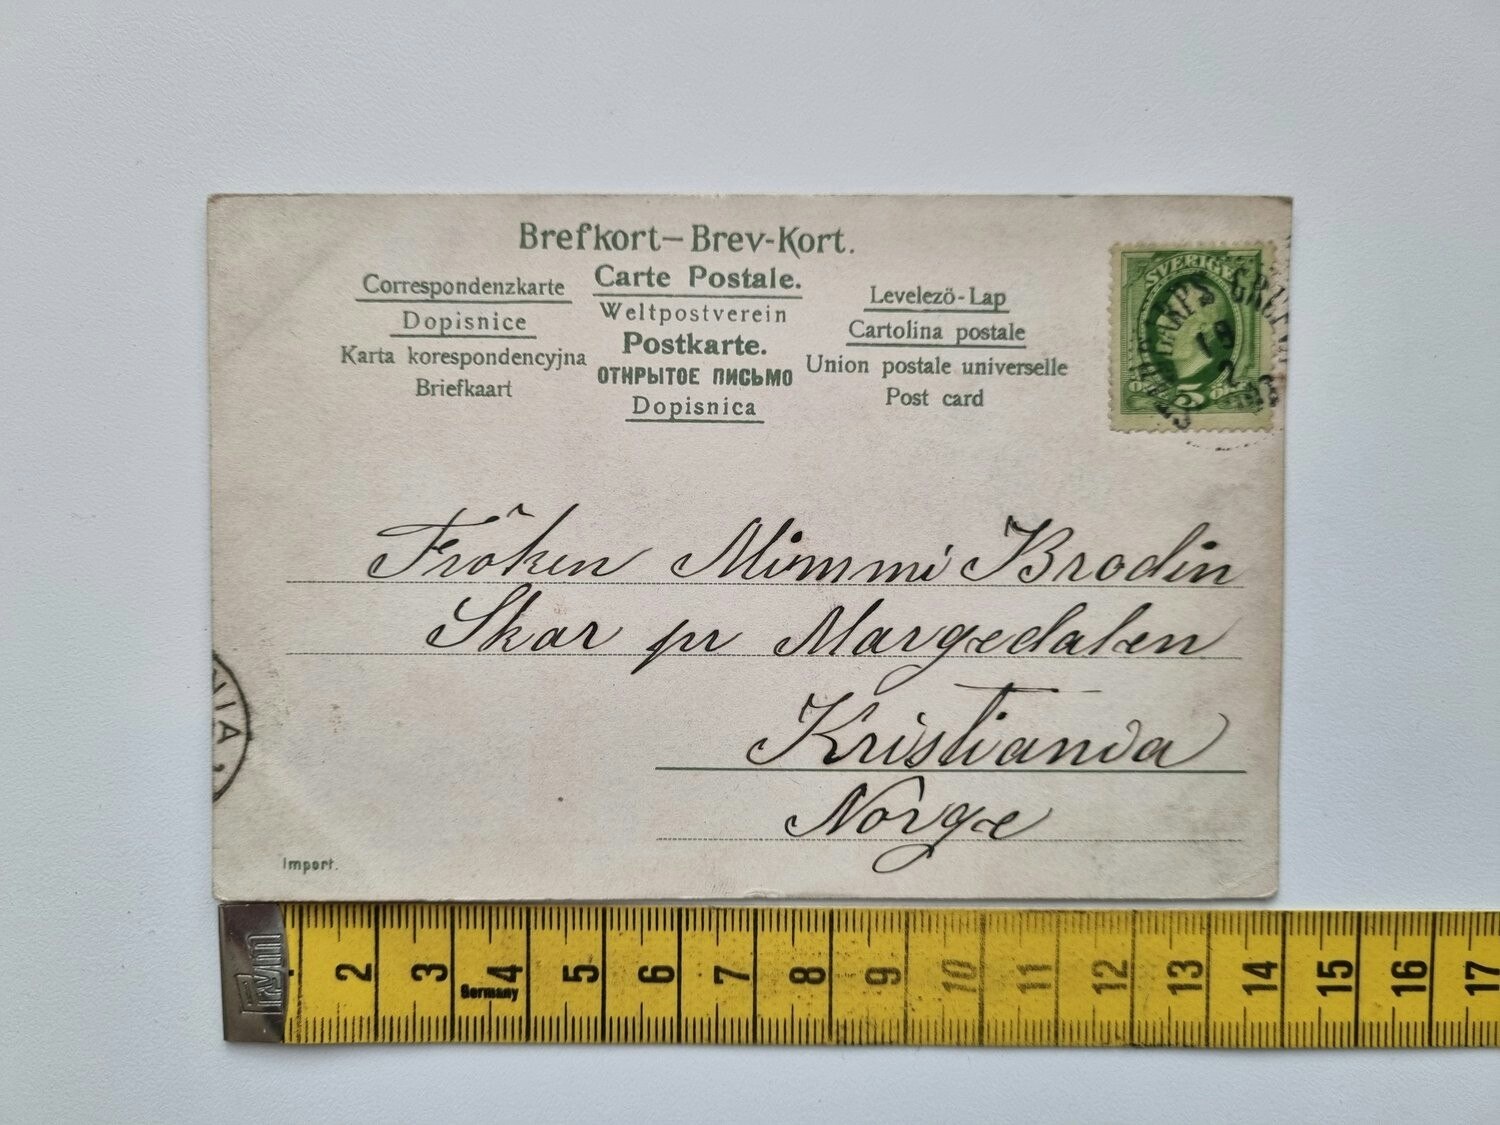 Brefkort – Brev-Kort.
Carte Postale.
Weltpostverein
Postkarte.
ОТКРЫТОЕ ПИСЬМО
Dopisnica
Correspondenzkarte
Dopisnice
Karta korespondencyjna
Briefkaart
Levelező-Lap
Cartolina postale
Union postale universelle
Post card
SVERIGE
5
19
2
Fröken Mimmi Brodin
Skar pr Margedalen
Kristiania
Norge
NIA
Import.
2 3 4 5 6 7 8 9 10 11 12 13 14 15 16 17
Germany